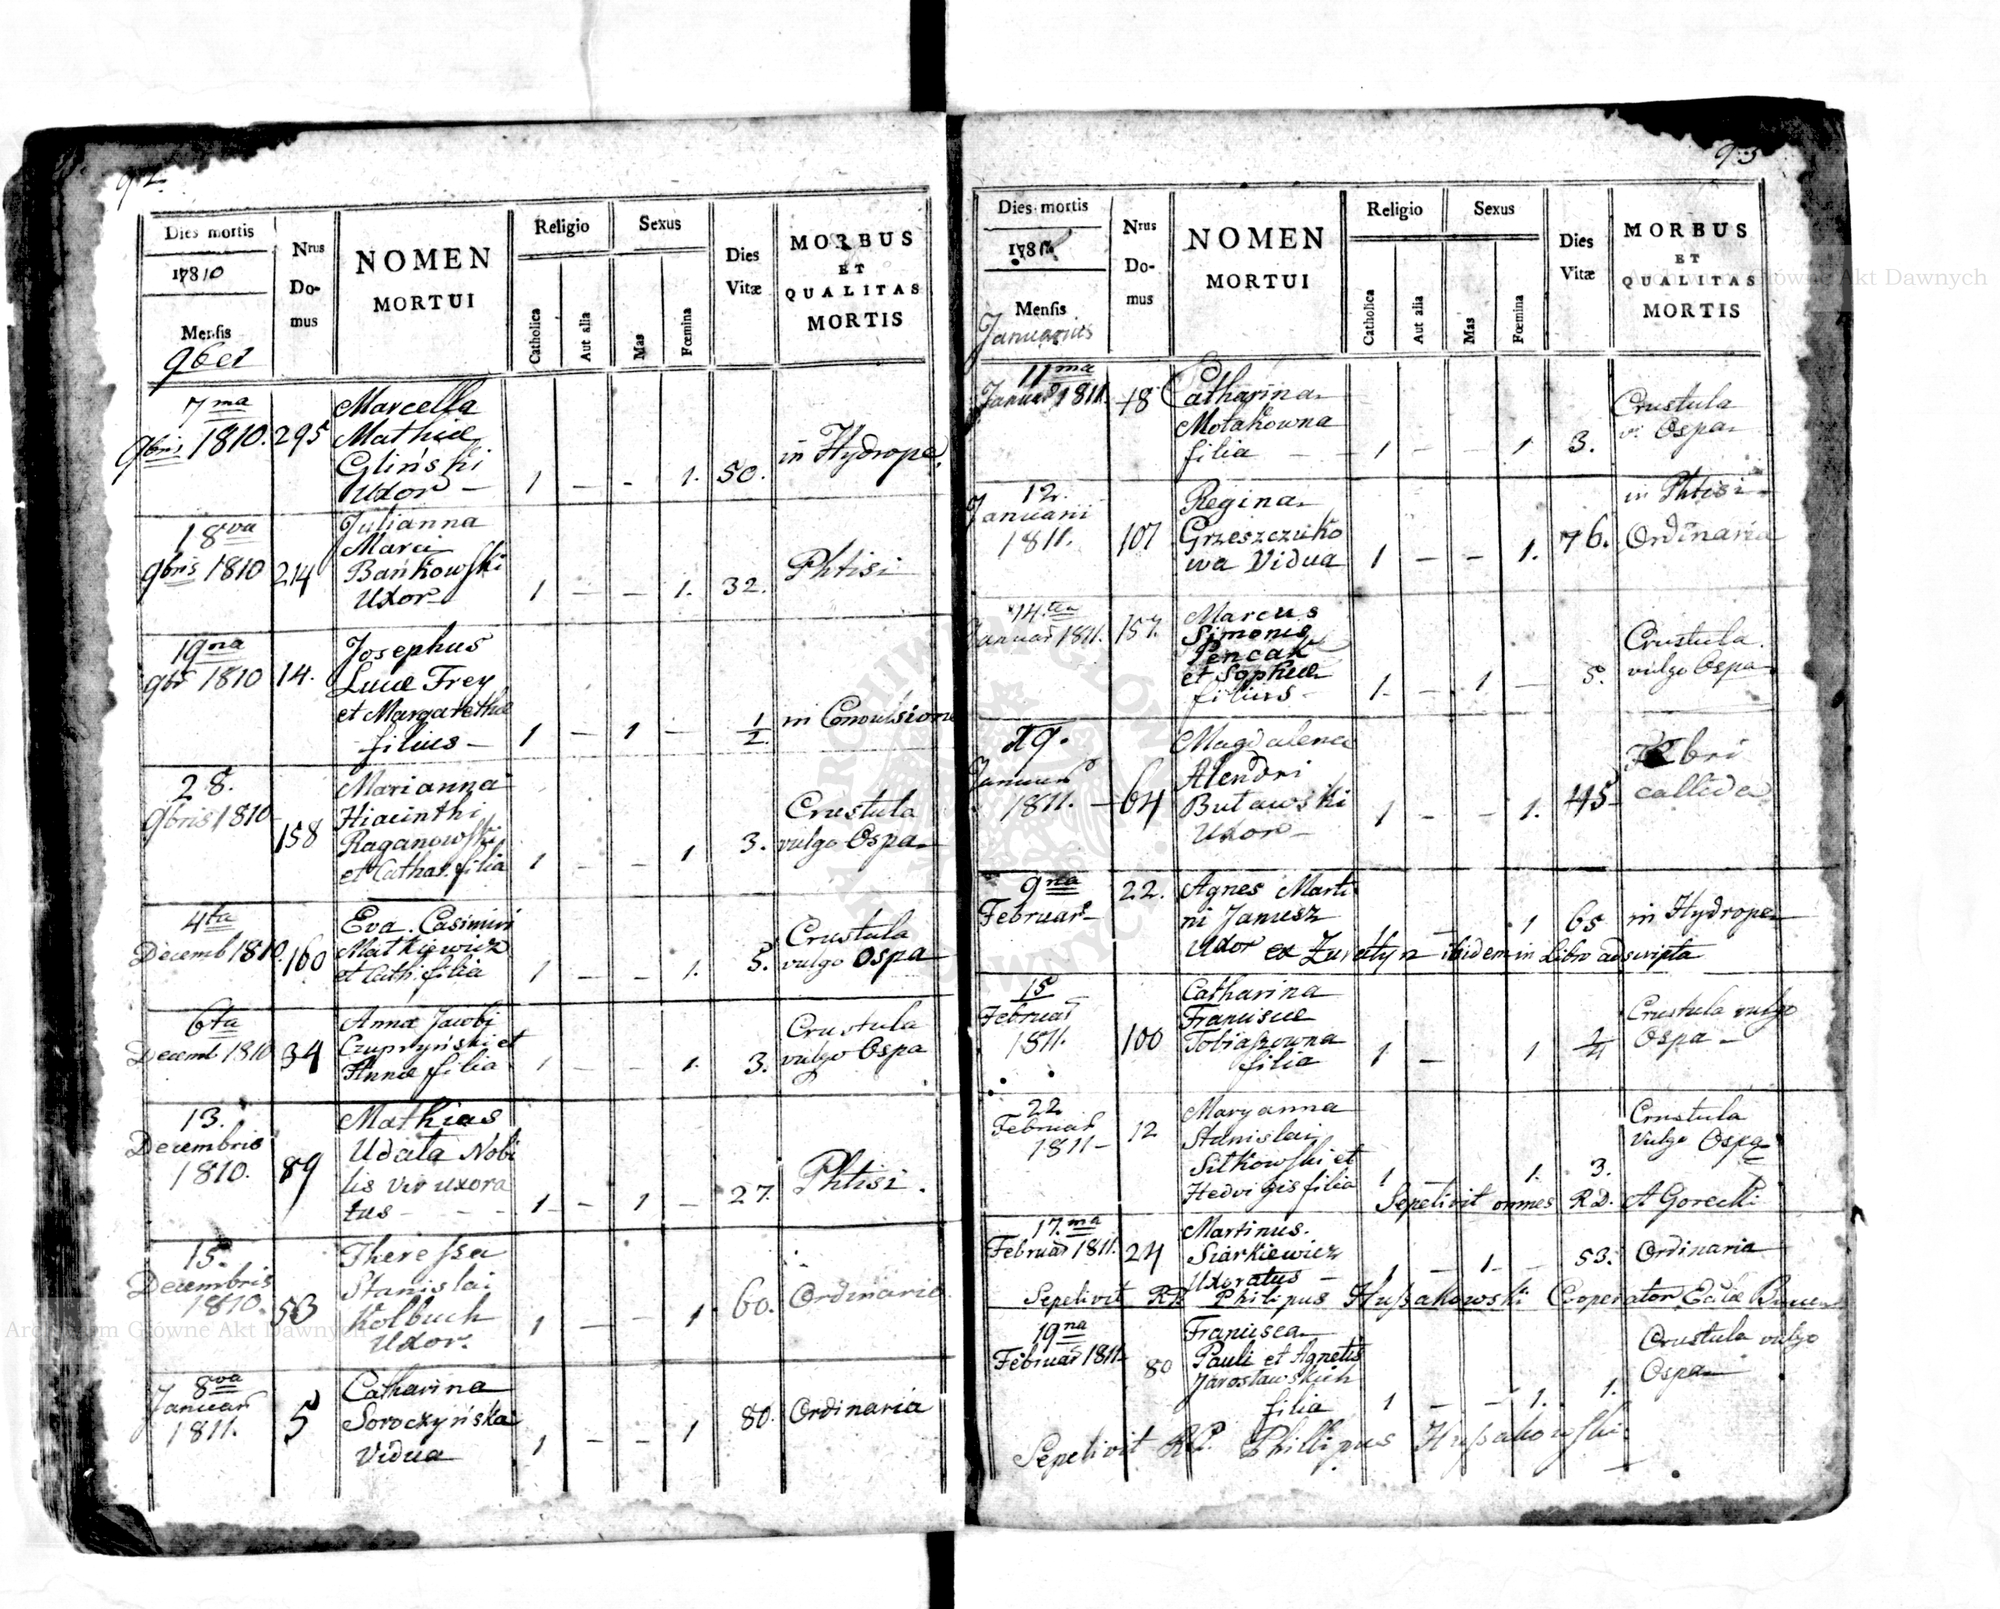 92
Dies mortis
17810
Mensis
9ber
Nrus Domus
NOMEN MORTUI
Religio
Catholica
Aut alia
Sexus
Mas
Fœmina
Dies Vitæ
MORBUS ET QUALITAS MORTIS
7ma
9bris 1810.
295
Marcella
Mathiæ
Gliński
Uxor –
1 – – 1. 50.
in Hydrope.
18va
9bris 1810
214
Julianna
Marci
Bańkowski
Uxor
1 – – 1. 32.
Phtisi
19na
9br 1810
14.
Josephus
Lucæ Frey
et Margarethæ
filius –
1 – 1 – 1/2.
in Convulsione
28.
9bris 1810
158
Marianna
Hiacinthi
Raganowski
et Cathar. filia
1 – – 1 3.
Crustula
vulgo Ospa
4ta
Decemb 1810.
160
Eva Casimiri
Matkiewicz
et Cath. filia
1 – – 1. 5.
Crustula
vulgo Ospa
6ta
Decemb 1810
34
Anna Jacobi
Czupryński et
Annæ filia
1 – – 1. 3.
Crustula
vulgo Ospa
13.
Decembris
1810.
89
Mathias
Udata Nobi
lis vir uxora
tus – – –
1 – 1 – 27.
Phtisi.
15.
Decembris
1810.
53
Theressa
Stanislai
Kolbuch
Uxor.
1 – – 1 60.
Ordinaria
8va
Januar
1811.
5
Catharina
Soroczyńska
Vidua
1 – – 1 80.
Ordinaria
93
Dies mortis
Mensis
Januarius
Nrus Domus
NOMEN MORTUI
Religio
Catholica
Aut alia
Sexus
Mas
Fœmina
Dies Vitæ
MORBUS ET QUALITAS MORTIS
11ma
Januar 1811.
18
Catharina
Motakowna
filia –
1 – – 1 3.
Crustula
v. Ospa
12.
Januarii
1811.
107
Regina
Grzeszczuko
wa Vidua
1 – – 1. 76.
in Phtisi
Ordinaria
14.ta
Januar 1811.
157.
Marcus
Simonis
Pencak
et Sophiæ
filius –
1 – 1 – 5.
Crustula
vulgo Ospa
19.
Januar
1811. –
64
Magdalena
Butawski
Uxor –
1 – – 1. 45
Febri
callida
9na
Februar
22.
Agnes Marti
ni Janusz
Uxor ex ibidem in Libro adscripta
1 – 1 65
in Hydrope
15
Februar
1811.
100
Catharina
Franciscæ
Tobiaszowna
filia
1 – 1
Crustula vulgo
Ospa –
22
Februar
1811 –
12
Maryanna
Stanislai
Sitkowski et
Hedvigis filia
1 1. 3.
Crustula
vulgo Ospa
Sepelivit omnes R.D. A Gorecki
17.ma
Februar 1811.
24
Martinus
Siarkiewicz
Uxoratus –
1 – 1 – 53.
Ordinaria
Sepelivit RP Philipus Hussakowski Cooperator
19na
Februar 1811
80
Francisca
Pauli et Agnetis
Jarosławskich
filia
1 – – 1. 1.
Crustula vulgo
Ospa
Sepelivit RP. Phillipus Hussakowski.
Archiwum Główne Akt Dawnych
Archiwum Główne Akt Dawnych
ARCHIWUM GŁÓWNE AKT DAWNYCH